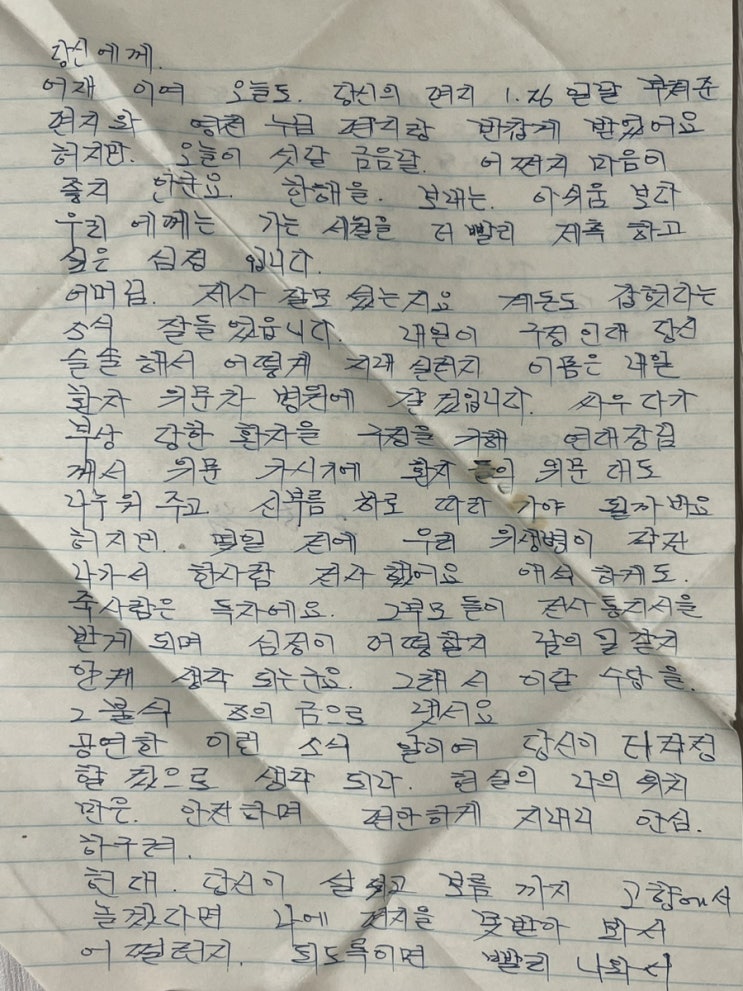 당신에게.
어재 이여 오늘도. 당신의 편지 1.26일날 부쳐준
편지와 영천 누님 편지랑 반갑게 받았어요
허지만. 오늘이 섯달 금음날. 어쩐지 마음이
좋지 안군요. 한해을. 보내는. 아쉬움 보다
우리 에게는 가는 세월을 더 빨리 재촉 하고
싶은 심정 입니다.
어머님. 제사 잘모 셨는지요 계돈도 갑헛다는
소식 잘들 었읍니다. 내일이 구정 인대 당신
쓸쓸 해서 어떻게 지내 실런지 이몸은 내일
환자 위문차 병원에 갈 것입니다. 싸우다가
부상 당한 환자을 구정을 기해 연대장님
께서 위문 가시기에 환자 들의 위문 대도
나누워 주고 신부름 하로 따라 가야 될까바요
허지만. 몇일 전에 우리 위생병이 작전
나가서 한사람 전사 했어요 애석 하게도.
죽사람은 독자에요. 그부모 들이 전사통지서을
받게 되며 심정이 어떻할지 남의 일 같지
안케 생각 되는군요. 그래 서 이달 수당 을.
그 불식 조의 금으로 냇서요
공연한 이런 소식 알이여 당신이 더걱정
할 것으로 생각 되나. 현실의 나의 위치
만은. 안전하며 편안하게 지내니 안심.
하구려.
헌대. 당신이 설 쇠고 보름 까지 고향에서
놀겠다면 나에 편지을 못받아 봐서
어쩔런지. 되도록이면 빨리 나와서